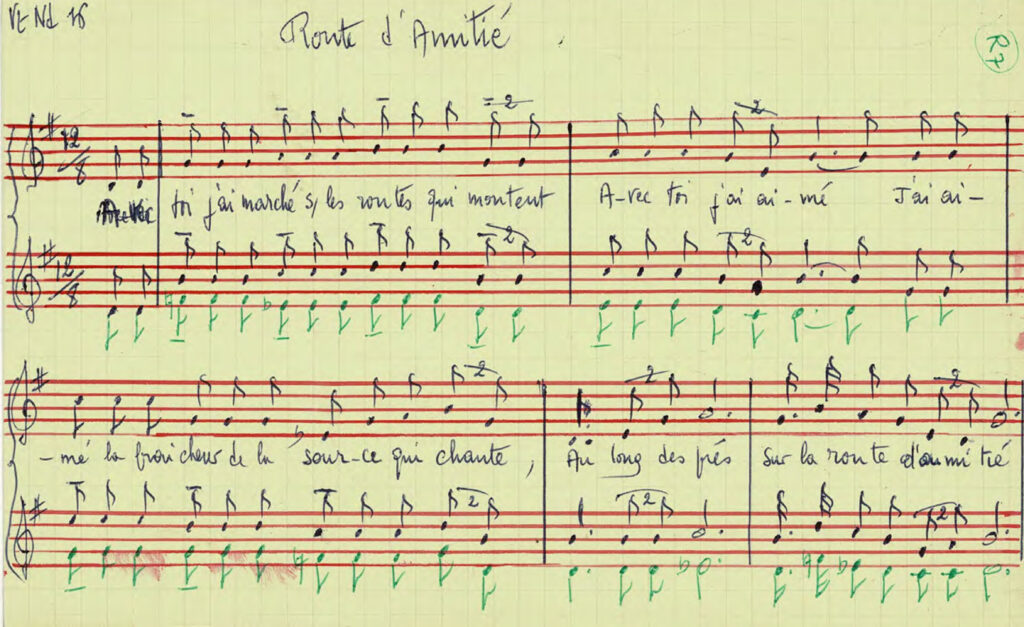 Vt Nd 16
Route d'Amitié
R7
12/8
Avec toi j'ai marché s/ les routes qui montent A-vec toi j'ai ai-mé J'ai ai-
12/8
-mé la fraicheur de la sour-ce qui chante, Au long des prés sur la route d'ami tié